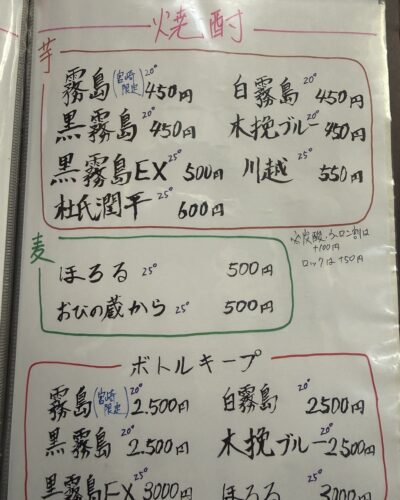 焼酎
芋
霧島(宮崎限定)20° 450円
白霧島 20° 450円
黒霧島 20° 450円
木挽ブルー 20° 450円
黒霧島EX 25° 500円
川越 25° 550円
杜氏潤平 25° 600円
※炭酸、ウーロン割は
+100円
ロックは+50円
麦
ほろる 25° 500円
おびの蔵から 25° 500円
ボトルキープ
霧島(宮崎限定)20° 2.500円
白霧島 20° 2500円
黒霧島 20° 2.500円
木挽ブルー 20° 2500円
黒霧島EX 25° 3000円
ほろる 25° 3000円